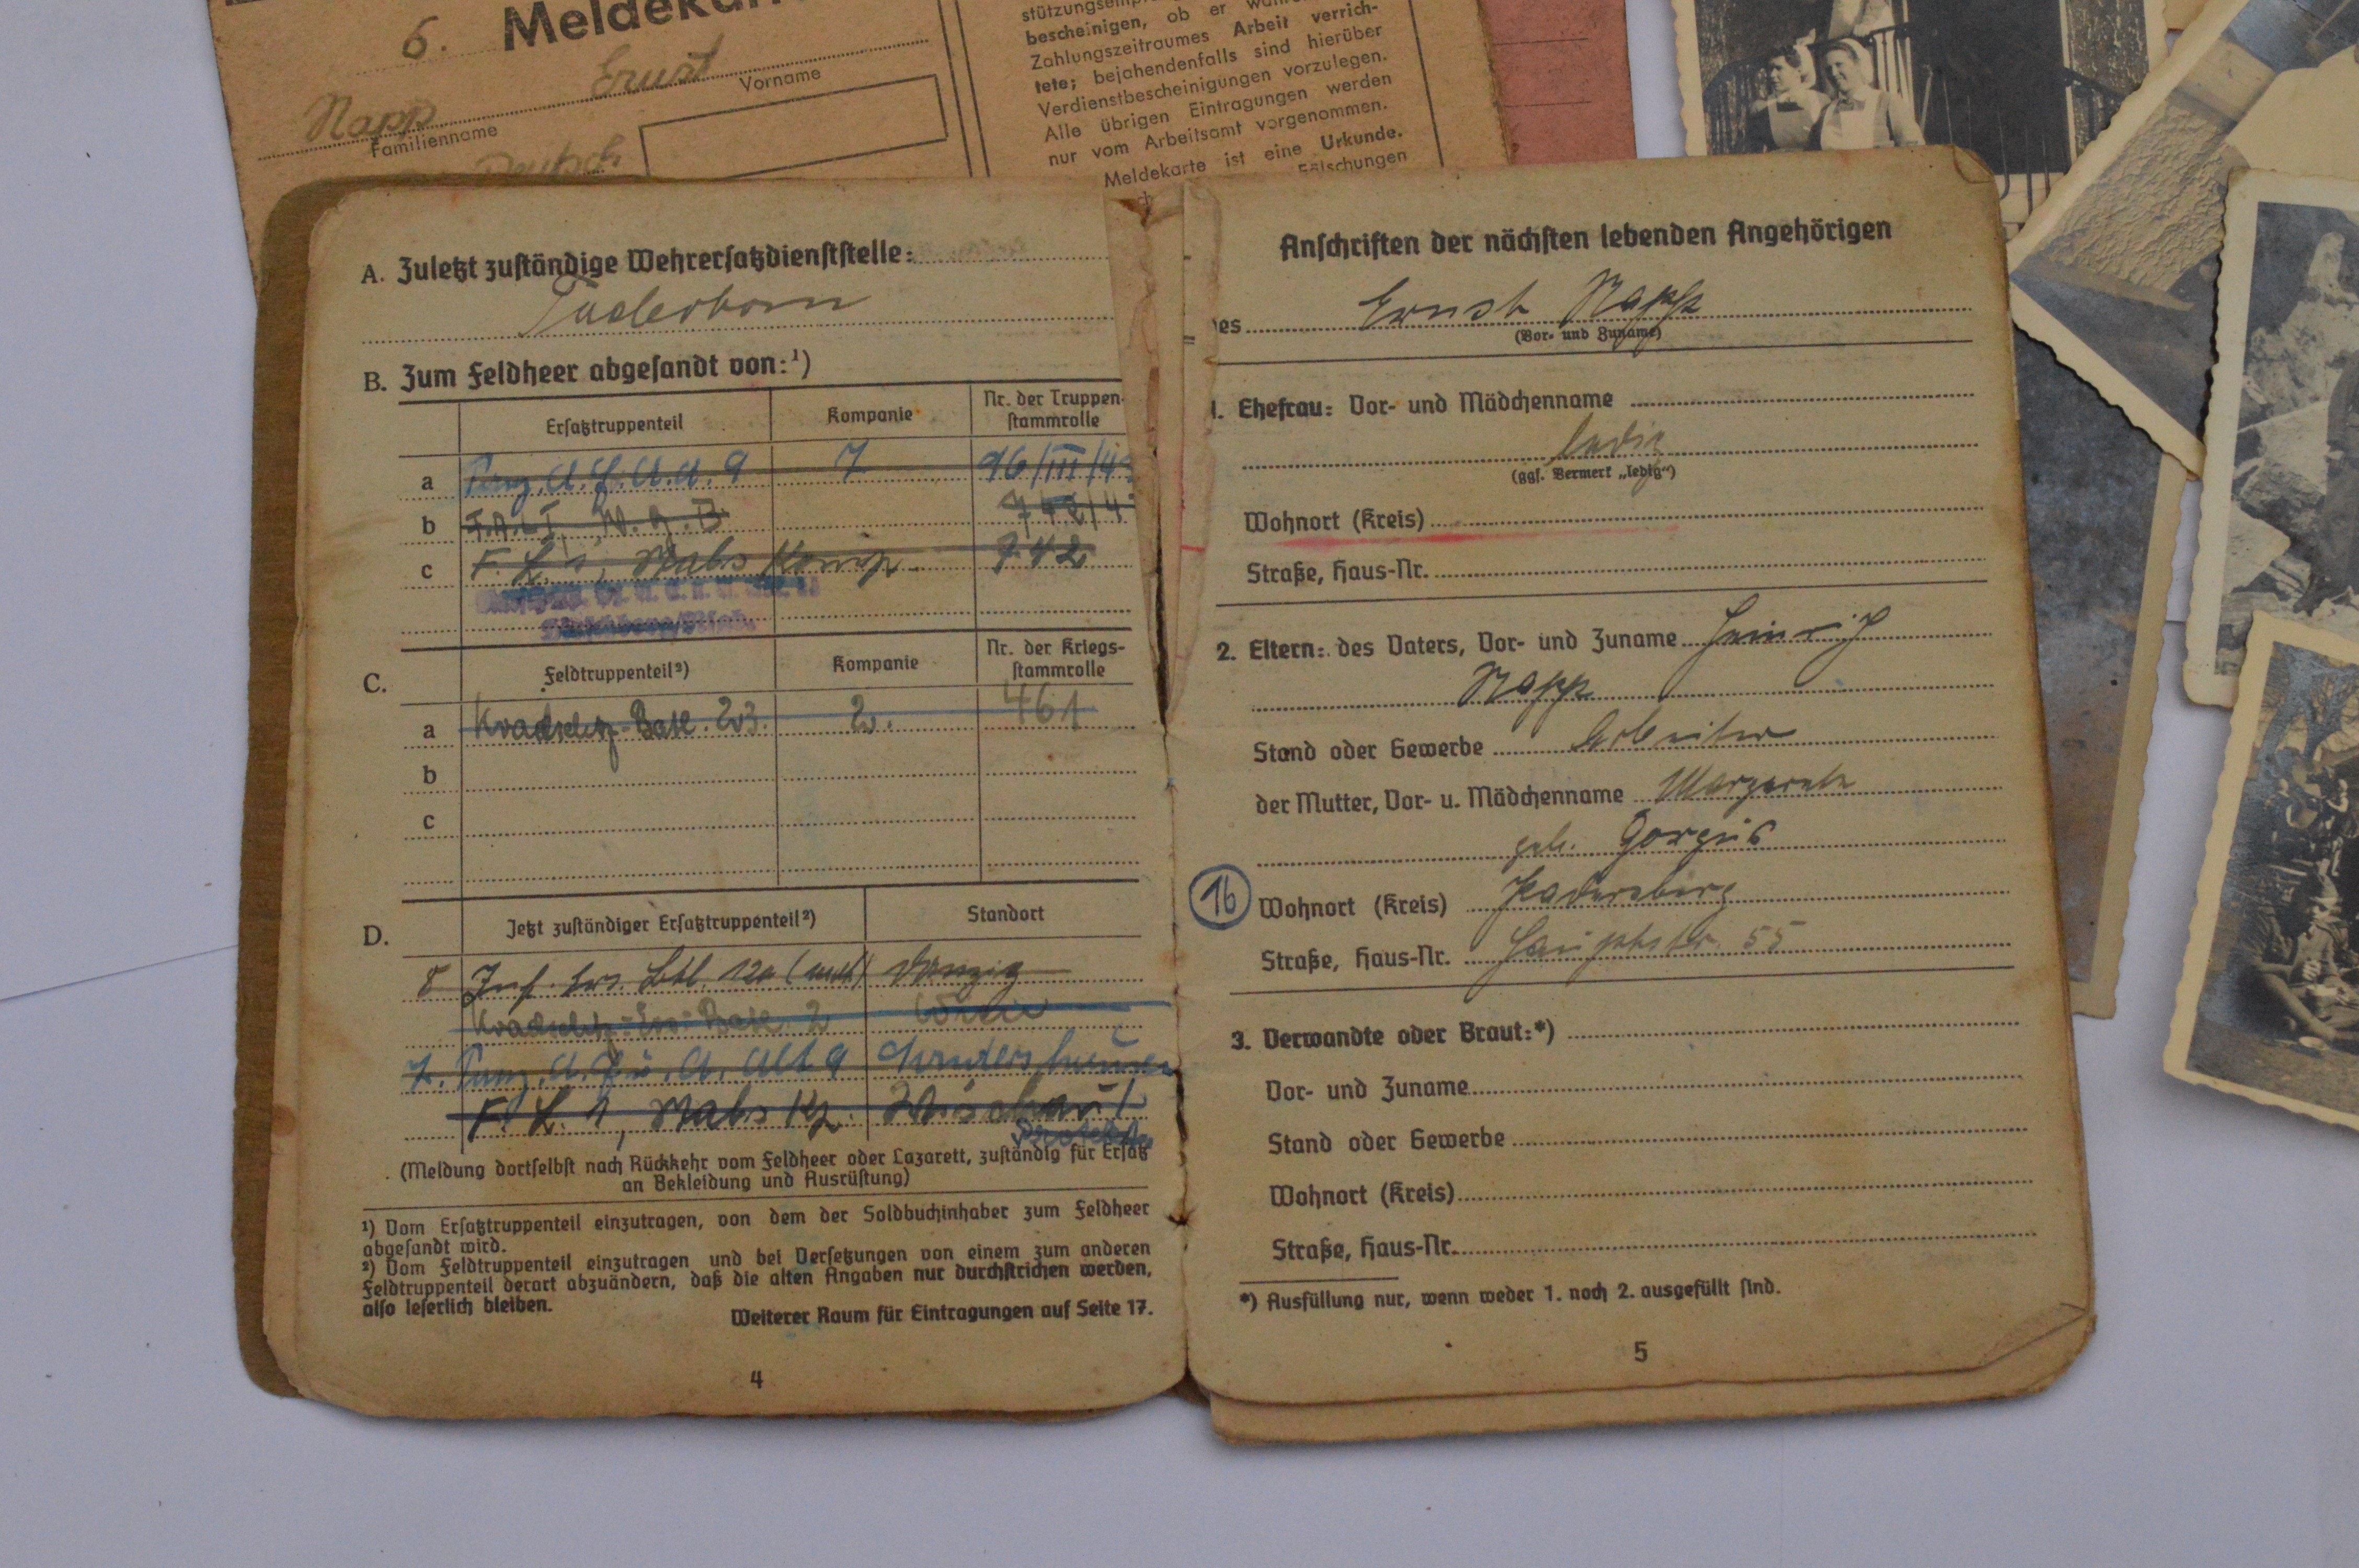 6. Meldekar
Ernst
Vorname
Napp
Familienname
Deutsch
bescheinigen, ob er
Zahlungszeitraumes Arbeit verrich-
tete; bejahendenfalls sind hierüber
Verdienstbescheinigungen vorzulegen.
Alle übrigen Eintragungen werden
nur vom Arbeitsamt vorgenommen.
Meldekarte ist eine Urkunde.
Fälschungen
A. Zuletzt zuständige Wehrersatzdienststelle:
Paderborn
B. Zum Feldheer abgesandt von:¹)
Ersatztruppenteil Kompanie Nr. der Truppen-
stammrolle
a Panz. A. 9 7 96/III/4
b
c F. L. 1, Nabs Komp. 742
C. Feldtruppenteil²) Kompanie Nr. der Kriegs-
stammrolle
a Kradschtz-Batl. 2. 461
b
c
D. Jetzt zuständiger Ersatztruppenteil²) Standort
Inf. Ers. Btl. (mot) Danzig
Kradschtz-Ers-Batl. 2
7. Panz. A. 9 Sondershausen
F. L. 1, Nabs Kp. Wischau
(Meldung dortselbst nach Rückkehr vom Feldheer oder Lazarett, zuständig für Ersatz
an Bekleidung und Ausrüstung)
¹) Vom Ersatztruppenteil einzutragen, von dem der Soldbuchinhaber zum Feldheer
abgesandt wird.
²) Vom Feldtruppenteil einzutragen und bei Versetzungen von einem zum anderen
Feldtruppenteil derart abzuändern, daß die alten Angaben nur durchstrichen werden,
also leserlich bleiben.
Weiterer Raum für Eintragungen auf Seite 17.
4
Anschriften der nächsten lebenden Angehörigen
des Ernst Napp
(Vor- und Zuname)
1. Ehefrau: Vor- und Mädchenname
ledig
(ggf. Vermerk „ledig“)
Wohnort (Kreis)
Straße, Haus-Nr.
2. Eltern: des Vaters, Vor- und Zuname Heinrich
Napp
Stand oder Gewerbe Arbeiter
der Mutter, Vor- u. Mädchenname Margarete
geb. Gorgus
16 Wohnort (Kreis)
Straße, Haus-Nr. Hauptstr. 55
3. Verwandte oder Braut:*)
Vor- und Zuname
Stand oder Gewerbe
Wohnort (Kreis)
Straße, Haus-Nr.
*) Ausfüllung nur, wenn weder 1. noch 2. ausgefüllt sind.
5